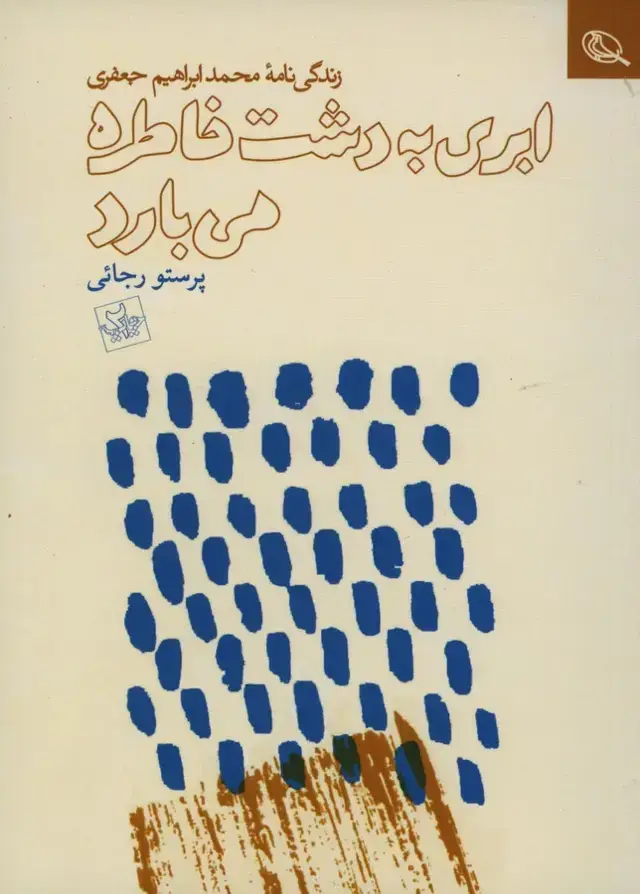 زندگی‌نامهٔ محمد ابراهیم جعفری
ابری به دشت خاطره
می‌بارد
پرستو رجائی
چاپ ۲